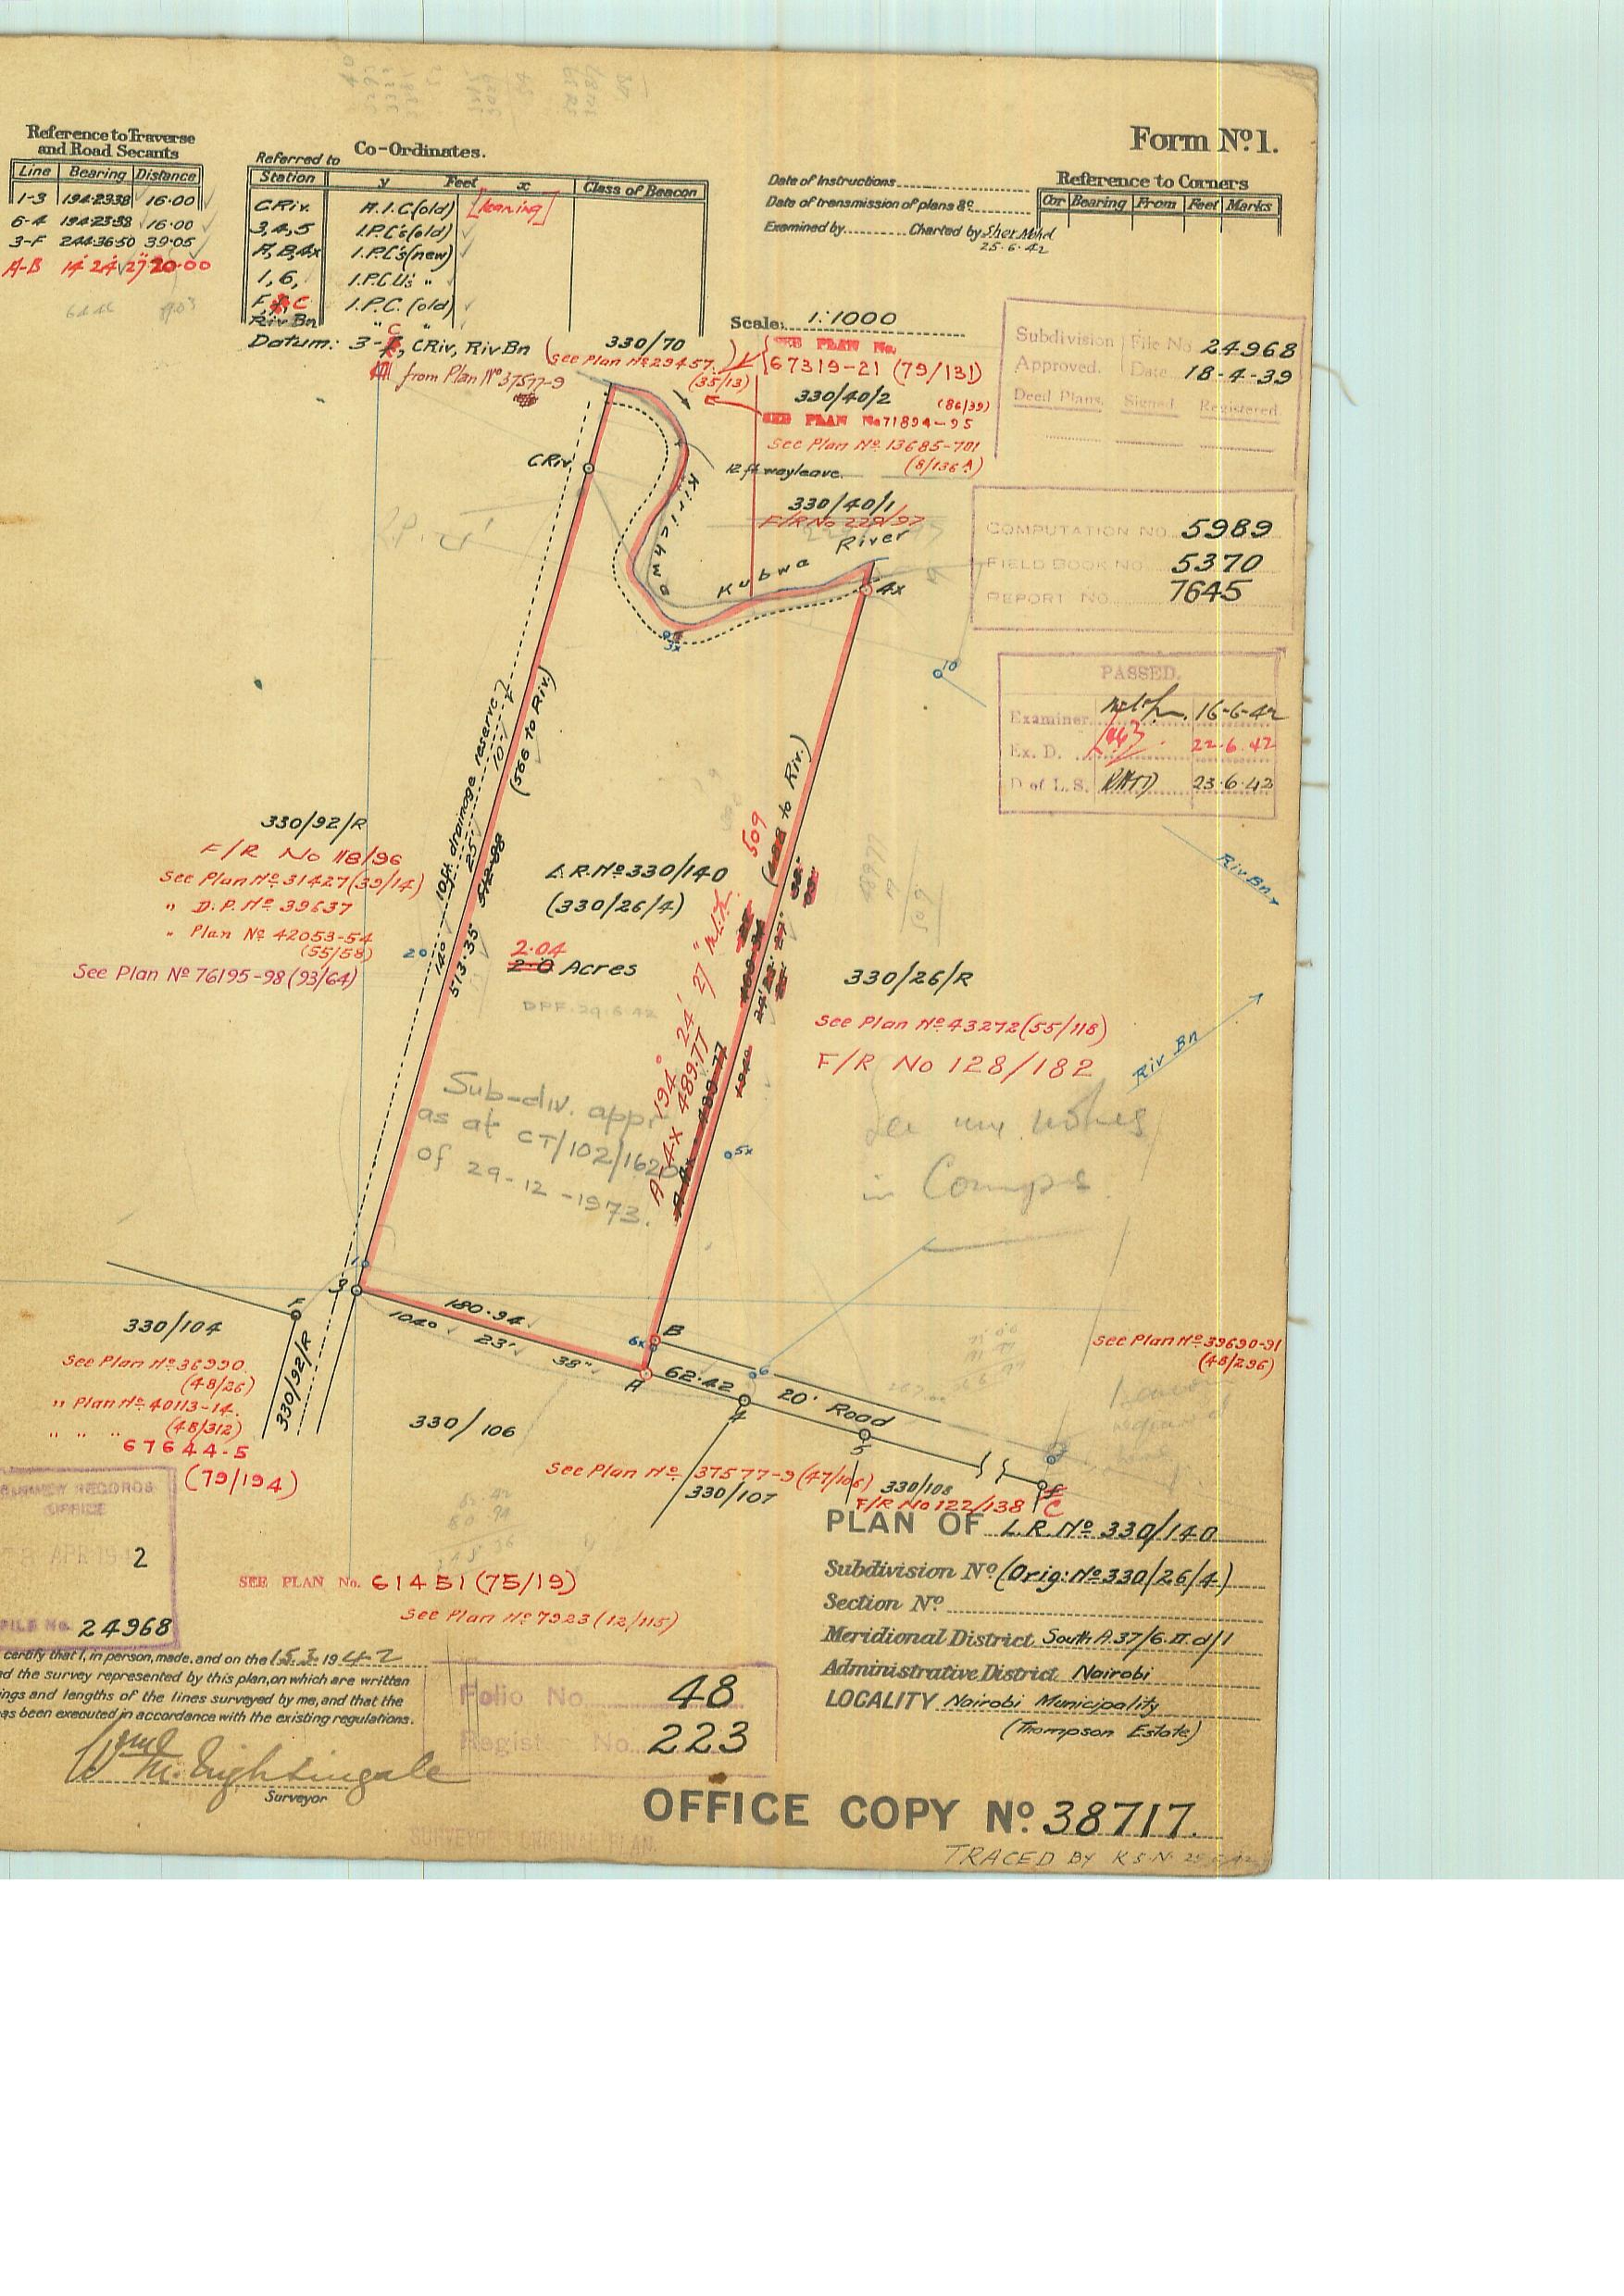 Form Nº 1.
Reference to Traverse
and Road Secants
Line Bearing Distance
1-3 194·23·38 16·00
6-4 194·23·38 16·00
3-F 244·36·50 39·05
A-B 14° 24' 27" 20·00
Co-Ordinates.
Referred to
Station y Feet x Class of Beacon
C Riv. H.I.C (old) [leaning]
3,4,5 I.P.C's (old)
A, B, 4x I.P.C's (new)
1, 6, I.P.C.U's "
F, C I.P.C. (old)
Riv Bn " "
Datum: 3-C, C Riv, Riv Bn
from Plan Nº 37577-9
Date of Instructions
Date of transmission of plans &c.
Examined by Charted by Sher Mohd
25·6·42
Reference to Corners
Cor Bearing From Feet Marks
Scale: 1:1000
330/70
(See Plan Nº 29457)
(35/13)
SEE PLAN No.
67319-21 (79/131)
330/40/2
(86/39)
SEE PLAN No 71894-95
See Plan Nº 13685-701
(8/136 A)
12 ft wayleave.
330/40/1
F/R No 229/97
Subdivision File No 24968
Approved. Date 18-4-39
Deed Plans. Signed Registered
COMPUTATION NO. 5989
FIELD BOOK NO. 5370
REPORT NO. 7645
PASSED.
Examiner 16-6-42
Ex. D. 22·6·42
D of L.S. 23·6·42
C Riv.
Kirichwa
Kubwa
River
4x
3x
10
10 ft. drainage reserve
(566 to Riv.)
14° 25' 10"
513·35
512·98
2
330/92/R
F/R No 118/96
See Plan Nº 31427 (39/14)
" D.P. Nº 39637
" Plan Nº 42053-54
(55/58)
See Plan Nº 76195-98 (93/64)
L.R. Nº 330/140
(330/26/4)
2·04
2·0 Acres
DPF. 29·6·42
509
to Riv.)
A-4x 489·77
194° 24' 27"
330/26/R
See Plan Nº 43272 (55/118)
F/R No 128/182
Riv Bn
Riv Bn
Sub-div. appr
as at CT/102/1620
of 29-12-1973.
5x
in Comps.
1
3
F
180·94
104° 23' 38"
6x
B
A
62·42
4
6
20' Road
5
C
330/104
See Plan Nº 36990.
(48/26)
" Plan Nº 40113-14.
(48/312)
" " " 67644-5
(79/194)
330/92/R
330/106
See Plan Nº 37577-9 (47/106)
330/107
330/108
F/R No 122/138
See Plan Nº 39690-91
(48/296)
SURVEY RECORDS
OFFICE
APR 194 2
FILE No. 24968
SEE PLAN No. 61451 (75/19)
See Plan Nº 7923 (12/115)
PLAN OF L.R. Nº 330/140
Subdivision Nº (Orig: Nº 330/26/4)
Section Nº
Meridional District South A.37/6.II.d/1
Administrative District Nairobi
LOCALITY Nairobi Municipality
(Thompson Estate)
certify that I, in person, made, and on the 15.3. 1942
d the survey represented by this plan, on which are written
ngs and lengths of the lines surveyed by me, and that the
as been executed in accordance with the existing regulations.
M. Nightingale
Surveyor
Folio No. 48
Regist No. 223
OFFICE COPY Nº 38717.
SURVEYOR'S ORIGINAL PLAN.
TRACED BY K.S.N.